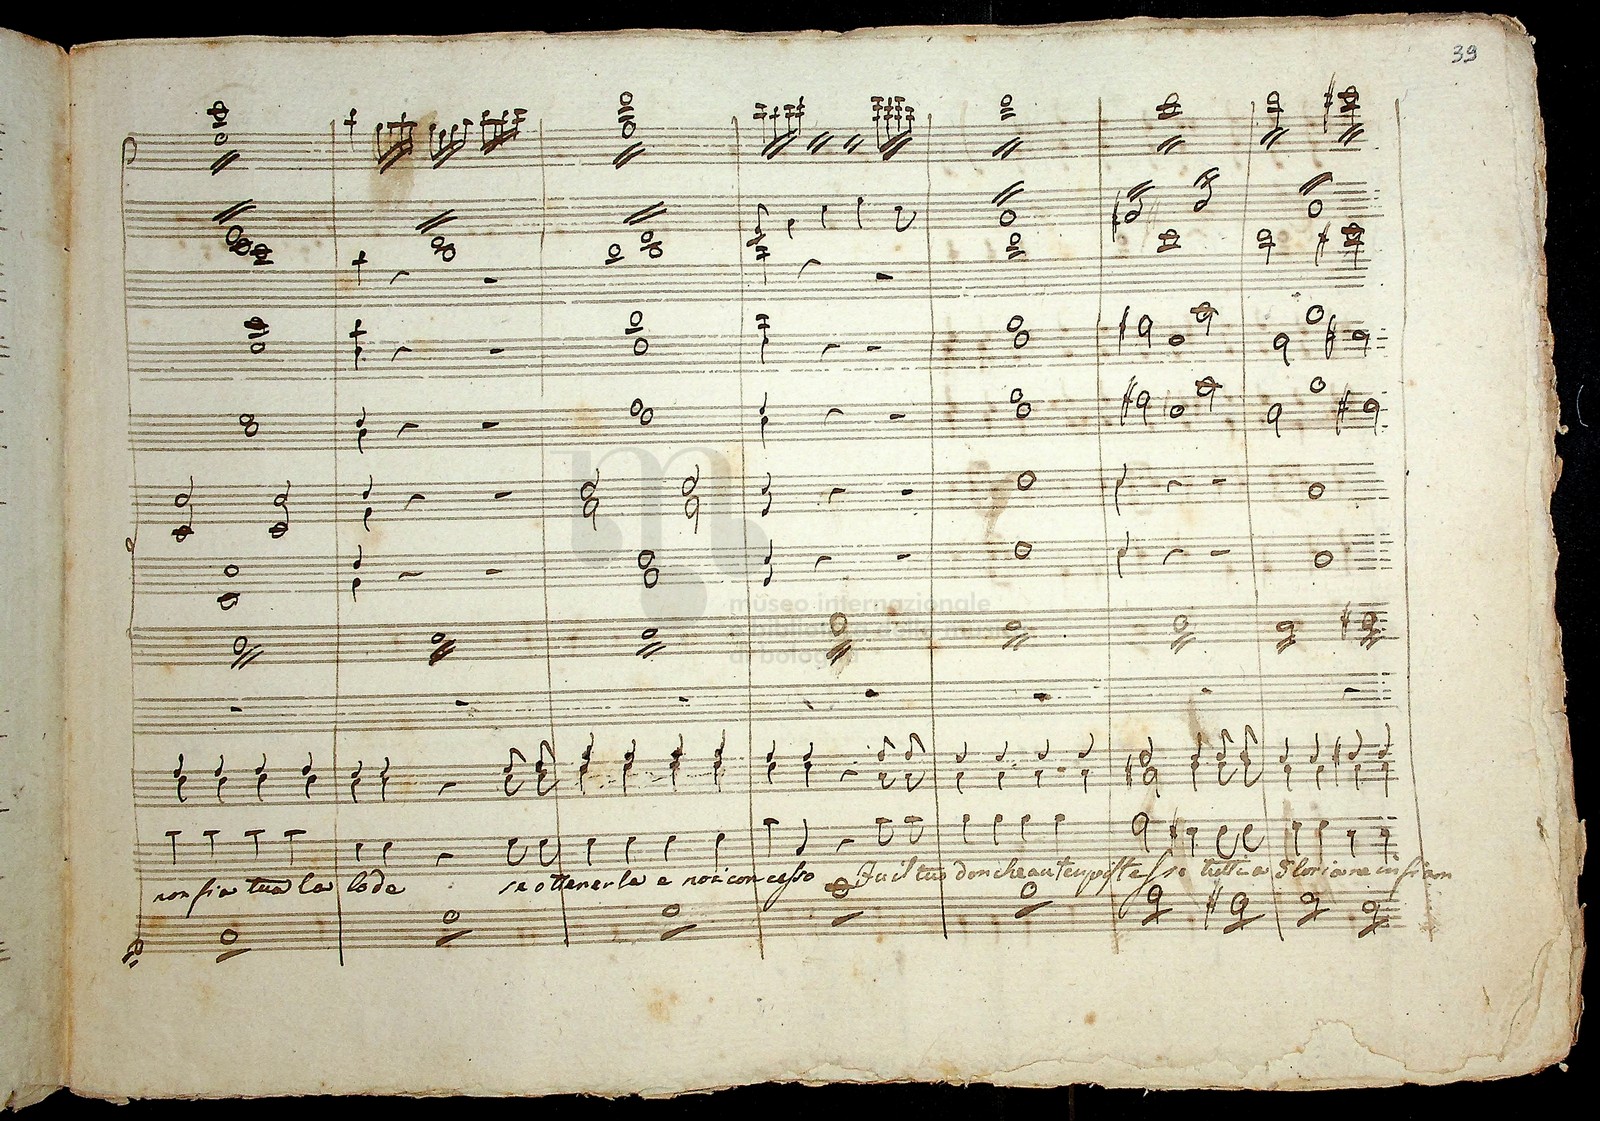 39
non sia tua la lode se ottenerla e noi concesso Fu il tuo don che a un tempo istesso tutti a Gloria ne
museo internazionale
e biblioteca della musica
di bologna